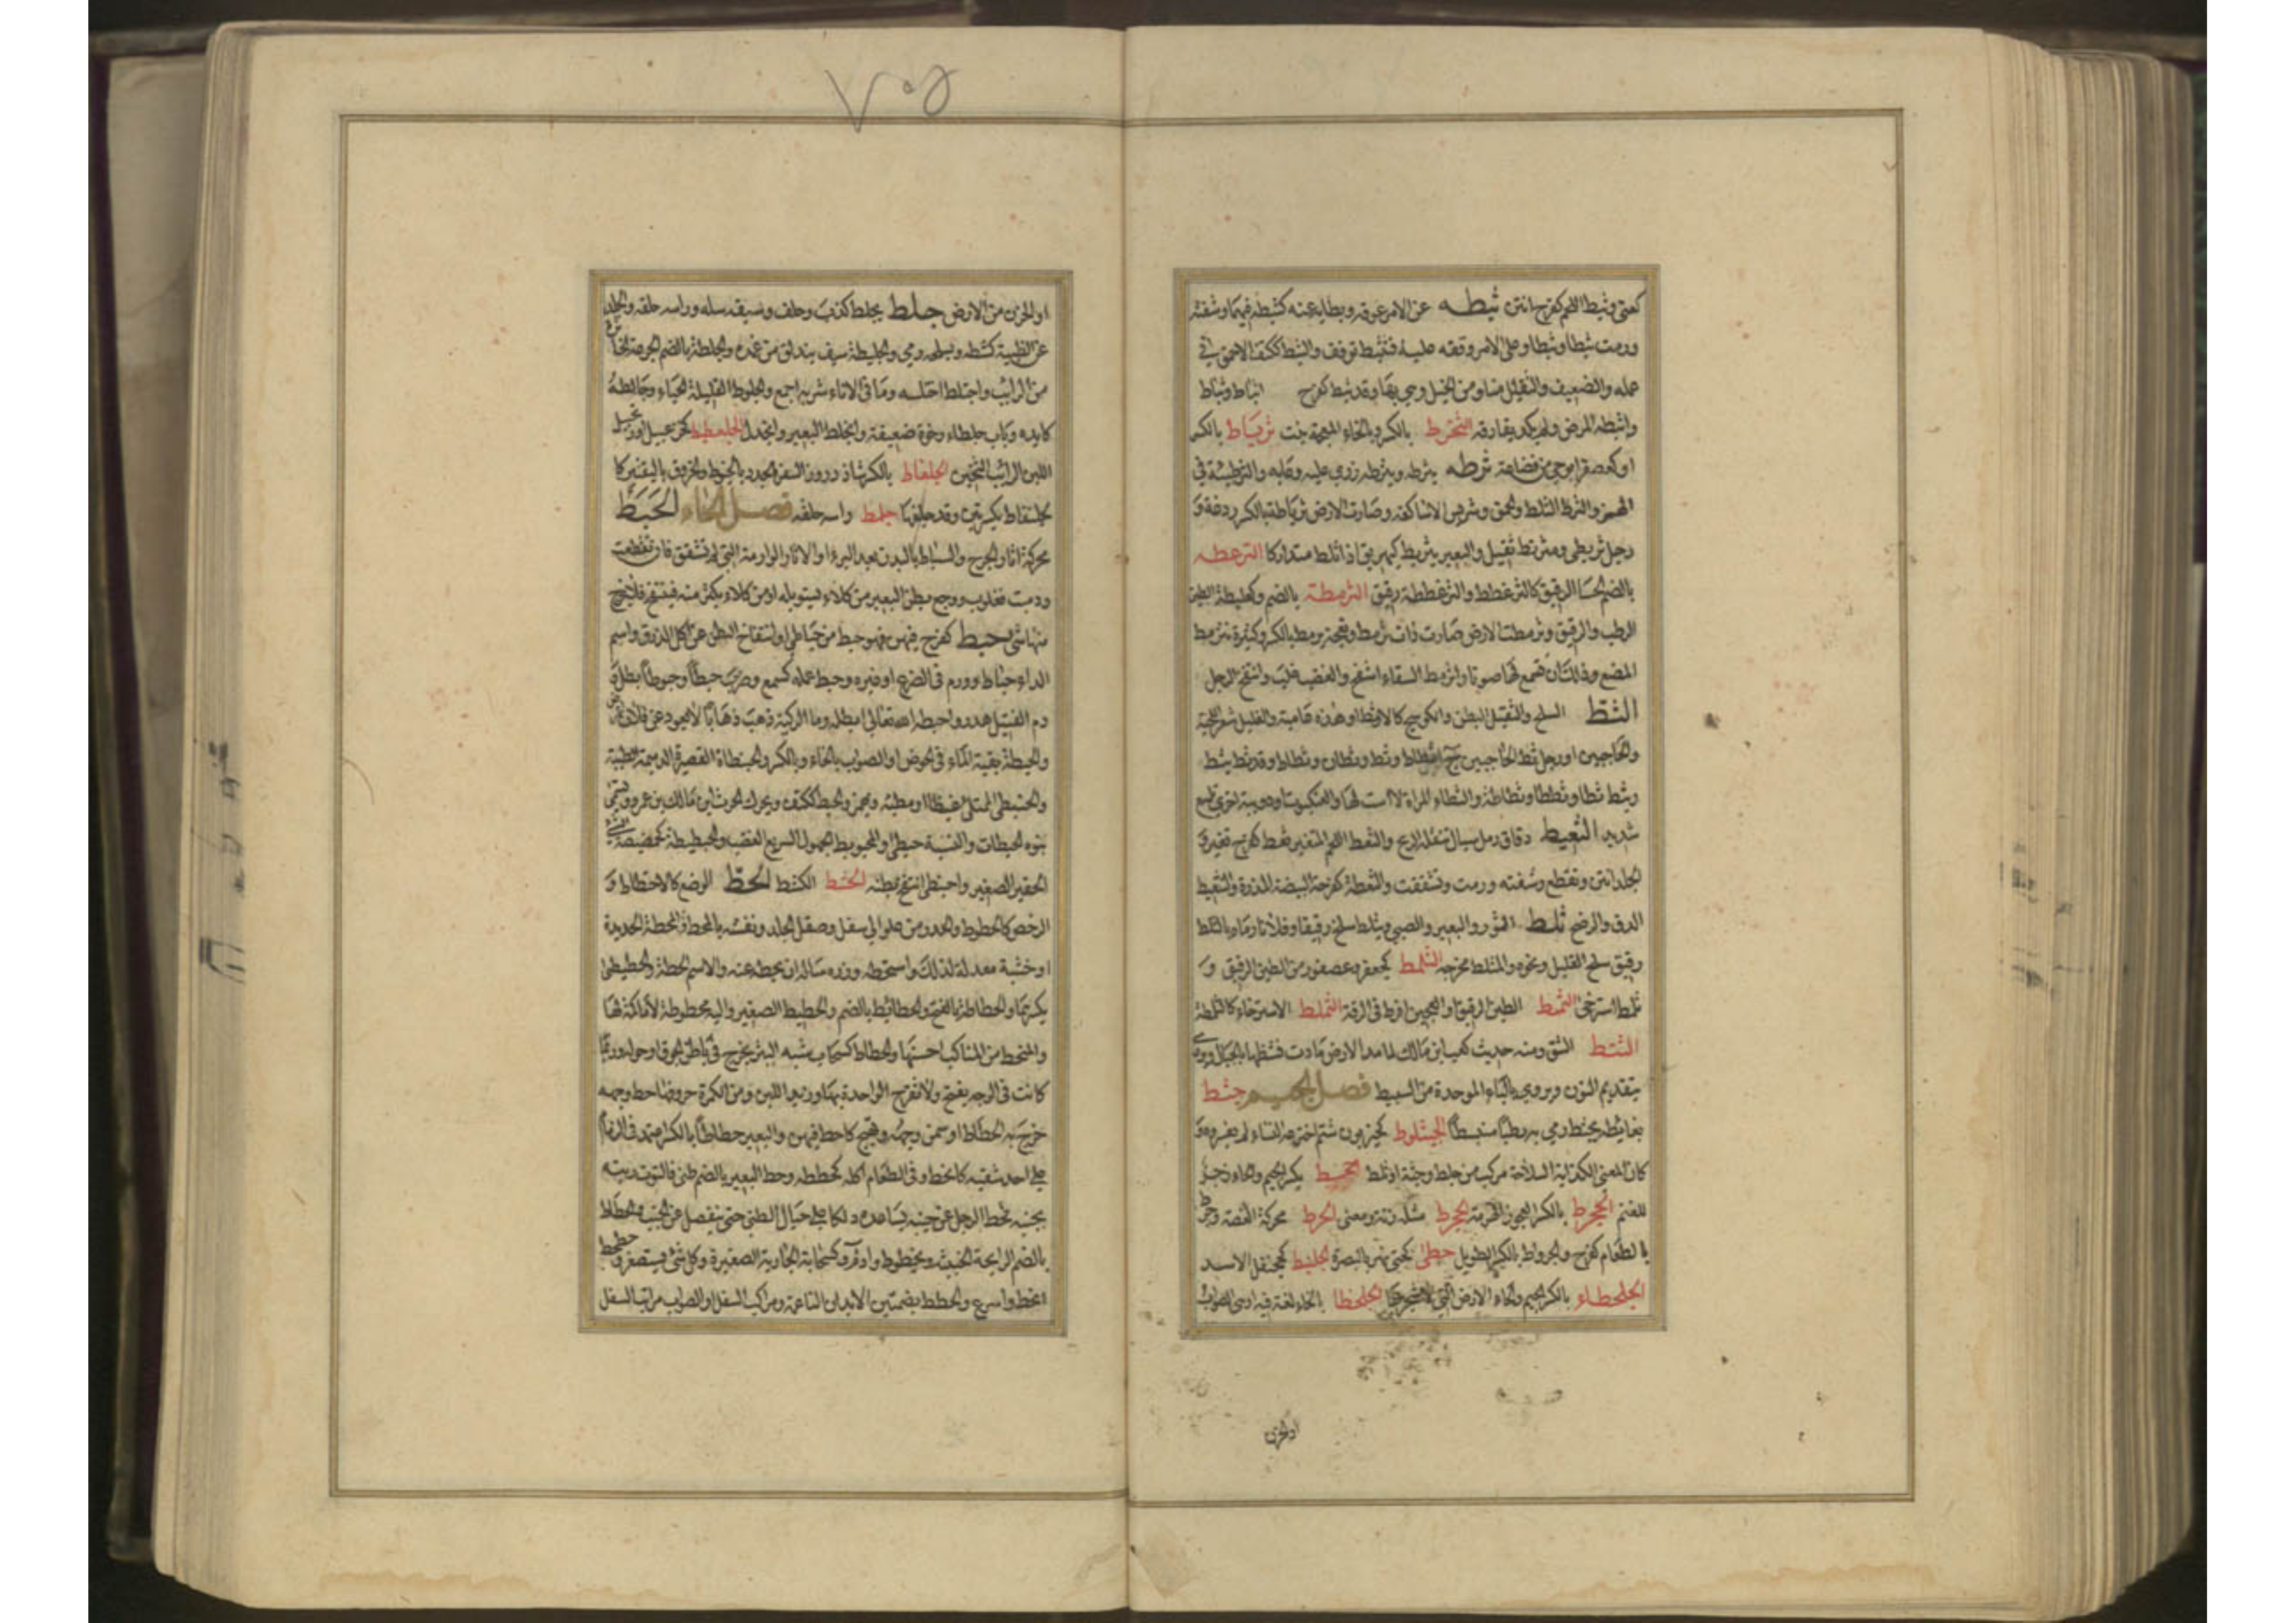 كعتي وثبط اللحم كفرح انتن ثبطه عن الامر عوقه وبطا به عنه كثبطه فيهما وشفته
ورمت ثبطا وثبطا وعلى الامر وقفه عليه فتثبط توقف والثبط ككتف الاحمق في
عمله والضعيف والثقيل منا ومن الخيل وهي بهاء وقد ثبط كفرح اثباط وثباط
واثبطه المرض ولم يكد يفارقه الثخرط بالكسر وبالخاء المعجمة نبت ثرباط بالكسر
او كعصفر ابوحي من قضاعة ثرطه يثرطه ويثرطه زري عليه وعابه والثرطئة في
الهمز والثرط الثلط والحمق وشريس الاساكفه وصارت الارض ثرياطة بالكسر ردغة و
رجل ثربطى ومثرنط ثقيل والبعير يثريط كيهريق اذا ثلط متداركا الثرعطه
بالضم الحسا الرقيق كالثرعطط والثرعططة رقيق الثرمطة بالضم وكعلبطة الطين
الرطب والرقيق وثرمطت الارض صارت ذات ثرمط ونعجة ثرمط بالكسر كبيرة تثرمط
المضغ وذلك ان تسمع لها صوتا واثرنمط السقاء انتفخ والغضب غلب وانتفخ الرجل
الثط السلح والثقيل البطن والكوسج كالاثط او هذه عامية والقليل شعر اللحية
والحاجبين او رجل ثط الحاجبين ج اثطاط وثط وثطان وثطاط وقد ثط يثط
ويثط ثطا وثططا وثطاطة والثطاء المراة لا است لها والعنكبوت او دويبة اخرى تلسع
شديد الثعيط دقاق رمل سيال تنقله الريح والثعط اللحم المتغير ثعط كفرح تغير و
الجلد انتن وتقطع وشفته ورمت وتشققت والثعطة كفرحة البيضة المذرة والثعيط
الدق والرضخ ثلط الثور والبعير والصبي يثلط سلح رقيقا وفلانا رماه بالثلط
رقيق سلح الفيل ونحوه والمثلط مخرجه الثلمط كجعفر وعصفور من الطين الرقيق و
ثلمط استرخى الثمط الطين الرقيق او العجين افرط في الرقة الثملط الاسترخاء كالثلمطة
الثنط الشق ومنه حديث كعب ابن مالك لما مد الارض مادت فثنطها بالجبال ويروى
بتقديم النون ويروى بالباء الموحدة من التثبيط فصل الجيم جثط
بغائطه يجثط رمى به رطبا منبسطا الجثلوط كحيزبون شتم اخترعه النساء لم يفسروه و
كان المعنى الكذابة السلاحة مركب من جلط وجثط او ثلط جحط بكسر الجيم والحاء زجر
للغنم الجحرط بالكسر العجوز الهرمة الجخرط مثله زنة ومعنى الجرط محركة الغصة وجرط
بالطعام كفرح والجرواط بالكسر الطويل جطى كحتى نهر بالبصرة الجلبط كجحنفل الاسد
الجلحطاء بالكسر الجيم والحاء الارض التي لا شجر بها الجلخطا بالخاء لغة فيه او هي الصواب
او الحزن
او الحزن من الارض جلط يجلط كذب وحلف وسيفه سله وراسه حلقه والجلد
عن الظبية كشطه وبسلحه رمى والجليطة سيف يندلق من غمده والجلطة بالضم الجرعة الخاثرة
من الرائب واجتلط اختلسه وما في الاناء شربه اجمع والجلوط القليلة الحياء وجالطه
كايده وناب جلطاء رخوة ضعيفة وانجلط البعير وانجدل الجلعطيط كخزعبيل اورنجبيل
اللبن الرائب الثخين الجلفاط بالكسر شاذ دروز السفن الجدد بالخيوط والخروق بالتقيير كا
لجلنفاط بكسرتين وقد جلفطها جلمط راسه حلقه فصل الحاء الحبط
محركة اثار الجرح والسياط بالبدن بعد البرء او الاثار الوارمة التي لم تشقق فان تقطعت
ودمت فعلوب ووجع ببطن البعير من كلاء يستوبله او من كلاء يكثر منه فينتفخ فلا يخرج
منها شئ حبط كفرح فيهن فهو حبط من حباطى او انتفاخ البطن عن اكل الذرق واسم
الداء حباط وورم في الضرع او غيره وحبط عمله كسمع وضرب حبطا وحبوطا بطل و
دم القتيل هدر واحبطه الله تعالى ابطله وماء الركية ذهب ذهابا لا يعود وعن فلان اعرض
والحبطة بقية الماء في الحوض او الصواب بالخاء وبالكسر والحبنطاة القصيرة الدميمة البطينة
والحبنطى الممتلئ غيظا او بطنة ويهمز والحبط ككتف ويحرك الحرث ابن مالك بن عمرو وتسمى
بنوه الحبطات والنسبة حبطى والمحبوبط الجهول السريع الغضب والحبطيطة كحمصيصة الشئ
الحقير الصغير واحبنطى انتفخ بطنه الحشط الكشط الحط الوضع كالاحتطاط و
الرخص كالحطوط والحدر من علو الى سفل وصقل الجلد ونقشه بالمحط والمحطة لحديدة
او خشبة معدة لذلك واستحطه وزره ساله ان يحطه عنه والاسم الحطة والحطيطى
بكسرتهما والحطاطة بالفتح والحطائط بالضم والحطيط الصغير والية محطوطة لا ماكمة لها
والمنحط من المناكب احسنها والحطاط كسحاب شبه البثر يخرج في باطن الحوق او حوله وربما
كانت في الوجه يقيح ولا تقرح الواحدة بهاء وزبد اللبن ومن الكمرة حروفها حط وجهه
خرج به الحطاط او سمن وجهه وتهيج كاحط فيهن والبعير حطاطا بالكسر اعتمد في الزمام
على احد شقيه كانحط وفي الطعام اكله كحططه وحط البعير بالضم طنى فالتوت رئته
بجنبه فحط الرجل عن جنبه بساعده دلكا على حيال الطنى حتى ينفصل عن الجنب والحطاط
بالضم الرايحة الخبيثة ويحطوط واد م وكسحابة الجارية الصغيرة وكل شئ يستصغر وحطحط
انحط واسرع والحطط بضمتين الابدان الناعمة ومراكب السفل او الصواب مراتب السفل